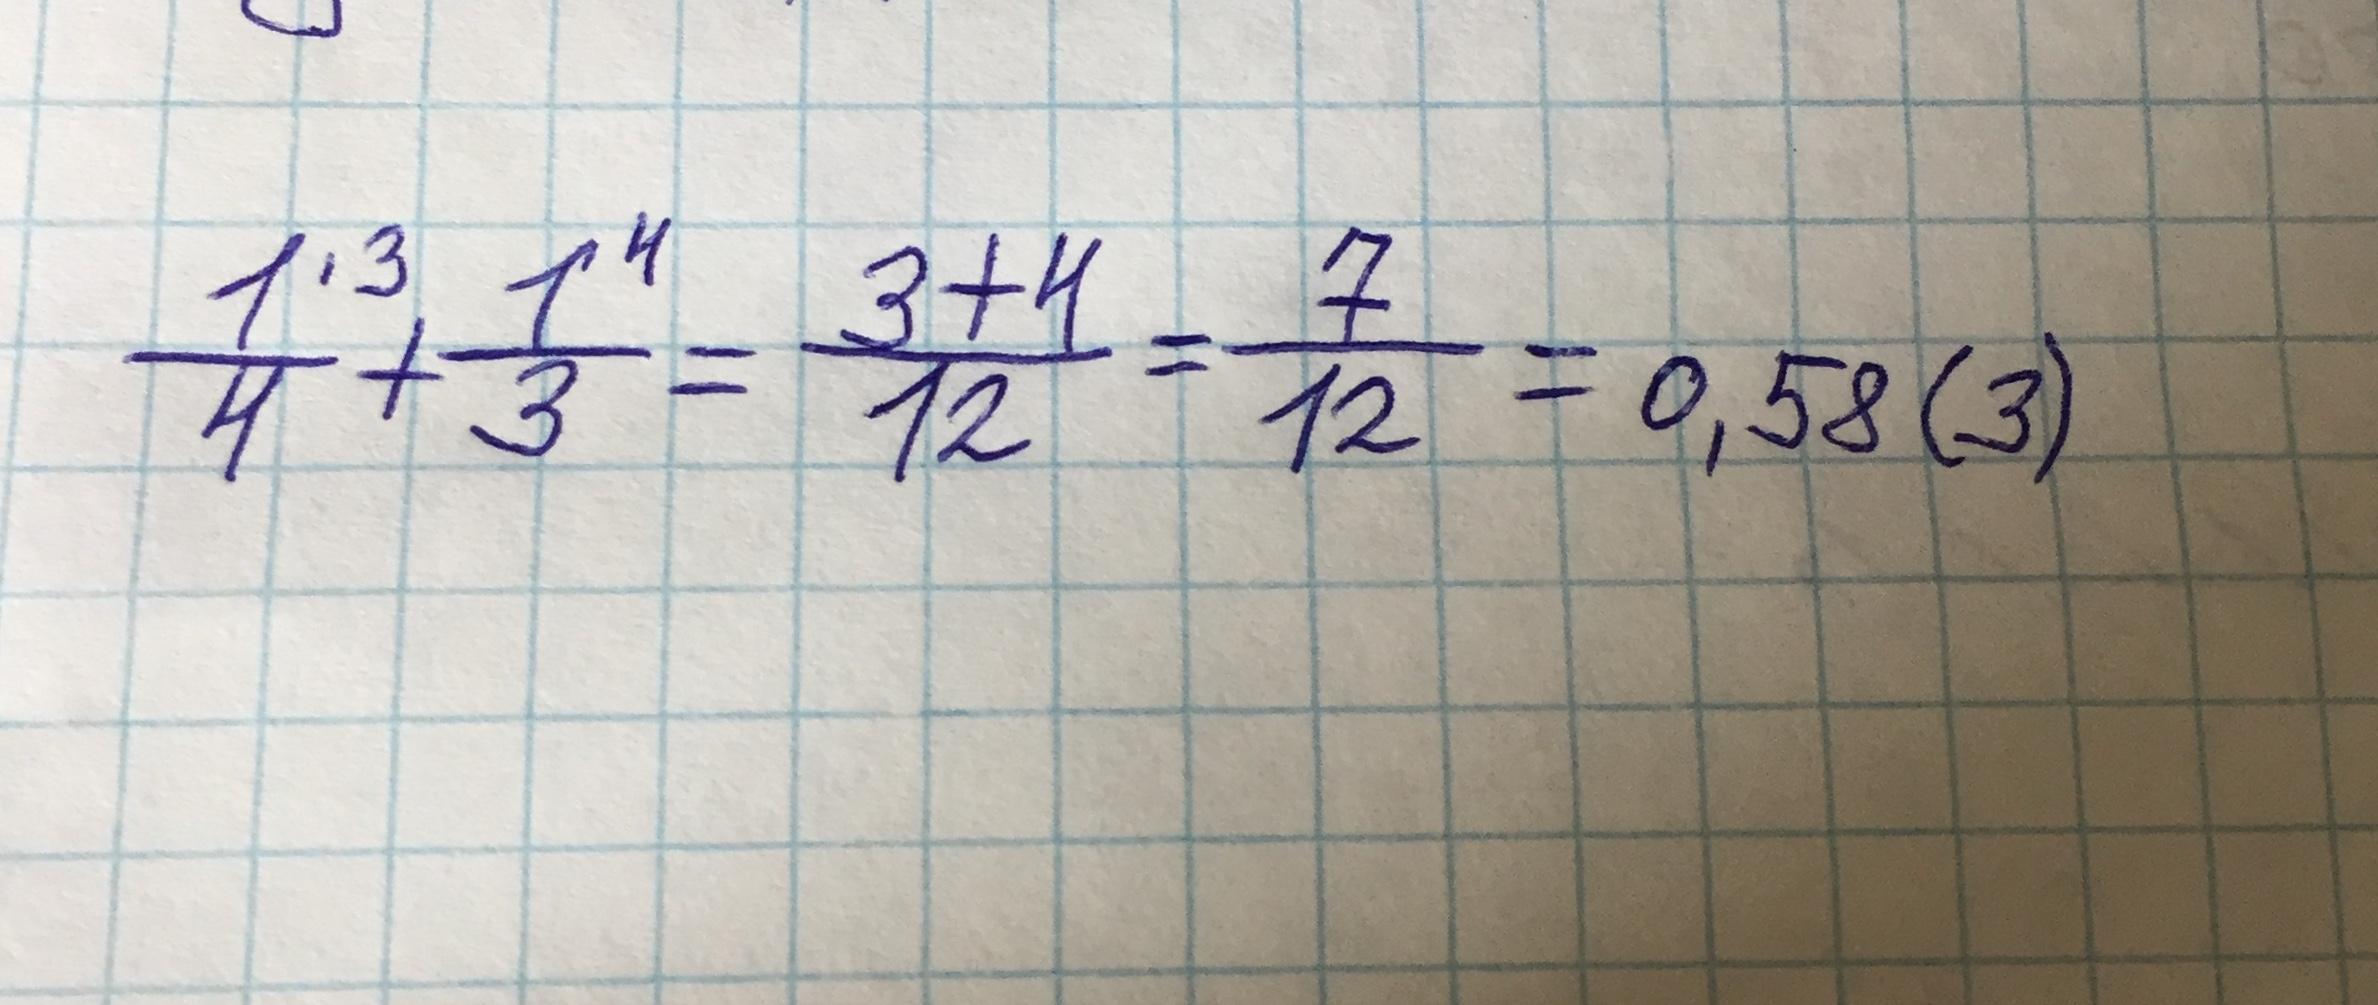 1·3/4 + 1·4/3 = 3+4/12 = 7/12 = 0,58(3)